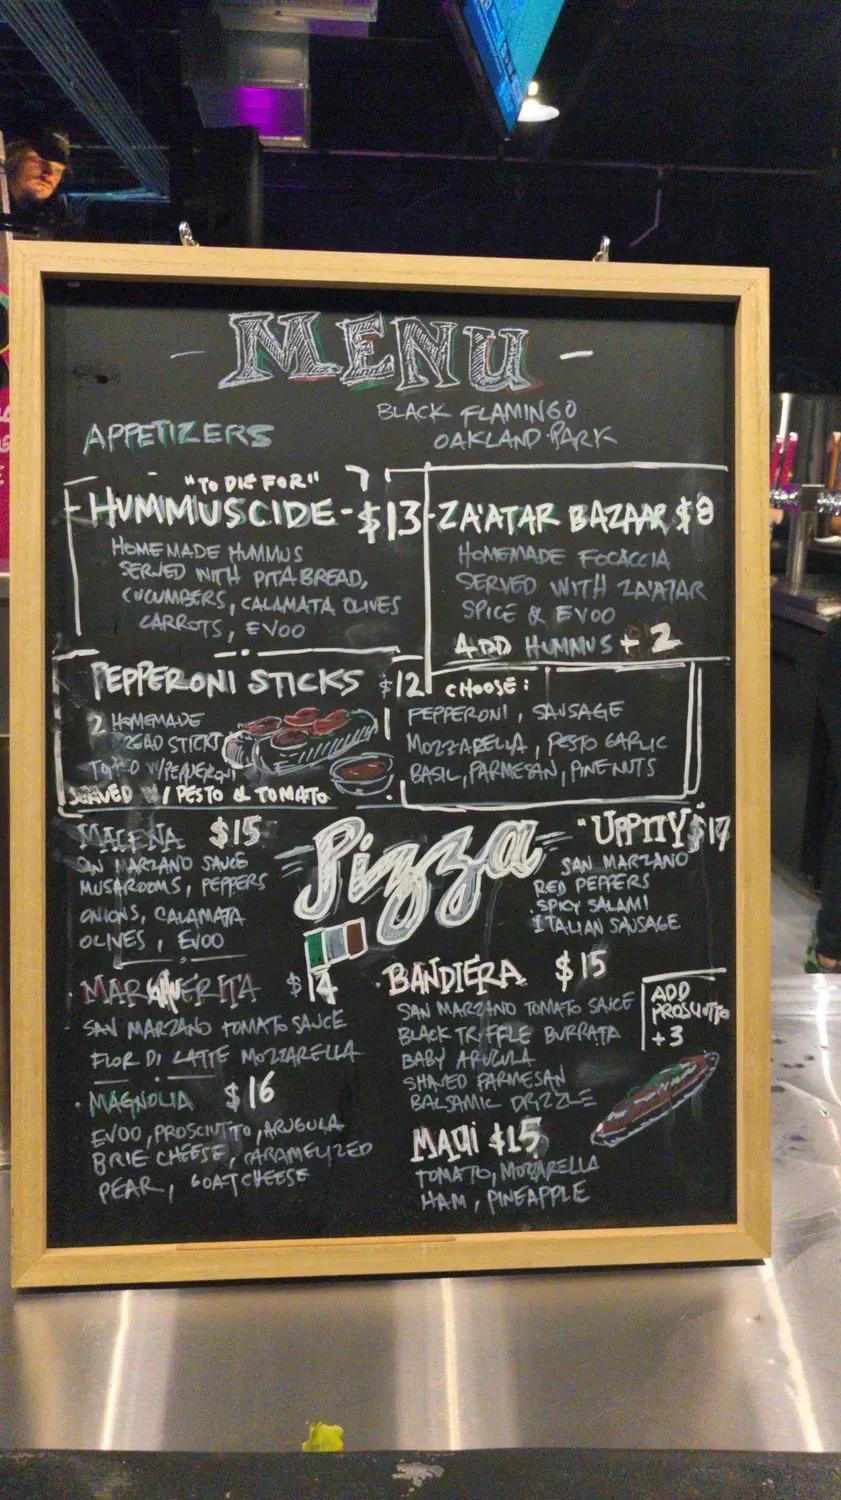 - MENU -
BLACK FLAMINGO
OAKLAND PARK
APPETIZERS
"TO DIE FOR"
HUMMUSCIDE - $13
HOMEMADE HUMMUS
SERVED WITH PITA BREAD,
CUCUMBERS, CALAMATA OLIVES
CARROTS, EVOO
ZA'ATAR BAZAAR $8
HOMEMADE FOCACCIA
SERVED WITH ZA'ATAR
SPICE & EVOO
ADD HUMMUS + 2
PEPPERONI STICKS $12
2 HOMEMADE
READ STICKS
W/PEPPERONI
SERVED W/ PESTO & TOMATO
CHOOSE:
PEPPERONI, SAUSAGE
MOZZARELLA, PESTO GARLIC
BASIL, PARMESAN, PINE NUTS
Pizza
MALENA $15
SAN MARZANO SAUCE
MUSHROOMS, PEPPERS
ONIONS, CALAMATA
OLIVES, EVOO
"UPPITY" $17
SAN MARZANO
RED PEPPERS
SPICY SALAMI
ITALIAN SAUSAGE
MARGUERITA $14
SAN MARZANO TOMATO SAUCE
FLOR DI LATTE MOZZARELLA
MAGNOLIA $16
EVOO, PROSCIUTTO, ARUGULA
BRIE CHEESE, CARAMELIZED
PEAR, GOAT CHEESE
BANDIERA $15
SAN MARZANO TOMATO SAUCE
BLACK TRUFFLE BURRATA
BABY ARUGULA
SHAVED PARMESAN
BALSAMIC DRIZZLE
ADD
PROSCIUTTO
+3
MAUI $15
TOMATO, MOZZARELLA
HAM, PINEAPPLE